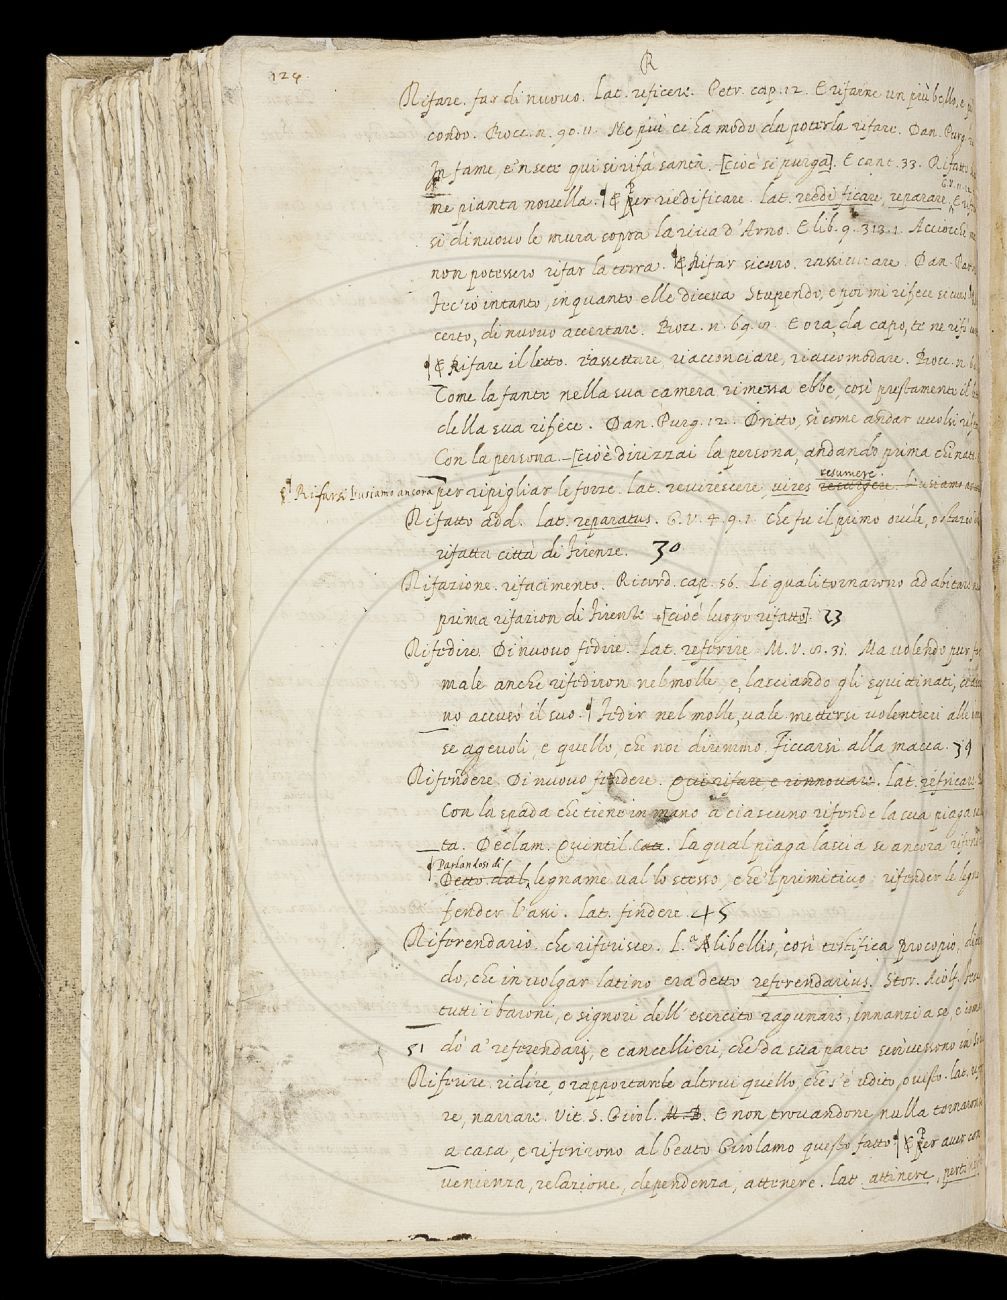 124.
R
Rifare. far di nuovo. Lat. reficere. Petr. cap. 12. E rifarne un più bello, e
condo. Bocc. n. 90. 11. Ne più ci ha modo da poterla rifare. Dan. Purg.
In fame, e'n sete qui si rifà santa. [cioè si purga]. E cant. 33. Rifatto
me pianta novella. ¶ E Per riedificare. lat. reedificare, reparare. G.V.
si di nuovo le mura sopra la riva d'Arno. E lib. 9. 313. 1. Acciocchè
non potessero rifar la terra. ¶ E Rifar sicuro. rassicurare. Dan. Par.
Fec'io intanto, in quanto elle diceva Stupendo, e poi mi rifece sicuro
certo, di nuovo accertare. Bocc. n. 69. E ora, da capo, te ne rifò
¶ E Rifare il letto. rassettare riacconciare, riaccomodare. Bocc. n.
Come la fante nella sua camera rimessa ebbe, così prestamente il
della sua rifece. Dan. Purg. 12. Dritto, sì come andar vuolsi
Con la persona. [cioè dirizzai la persona, andando prima chinato
resumere.
¶ Rifarsi Usiamo ancora per ripigliar le forze. lat. revirescere, vires
Rifatto add. lat. reparatus. G.V. 4. 9. 1. che fu il primo ovile, o stazio
rifatta città di Firenze. 30
Rifazione. rifacimento. Ricord. cap. 56. Le quali tornarono ad abitare
prima rifazion di Firenze [cioè luogo rifatto]. 23
Rifedire. Di nuovo fedire. Lat. referire. M.V. 8. 31. Ma volendo pur far
male anche rifediron nel molle, e, lasciando gli squittinati,
no accusò il suo. ¶ Fedir nel molle, vale mettersi volentieri alle
se agevoli, e quello, che noi diremmo, Ficcarsi alla macca. 39
Rifendere. Di nuovo fendere. Qui rifare, e rinnovare. Lat. refricare
Con la spada che tiene in mano a ciascuno rifende la sua piaga
ta. Declam. Quintil. Cat. la qual piaga lascia se ancora
¶ Parlandosi di
Detto dal legname val lo stesso, che'l primitivo. rifender le legne
fender l'assi. Lat. findere. 45
Riferendario. che riferisce. L. A libellis, così testifica procopio,
do, che in volgar latino era detto referendarius. Stor. Aiolf.
tutti i baroni, e signori dell'esercito ragunare, innanzi a sè, e
51 dò a' referendari, e cancellieri, che da sua parte scrivessono
Riferire. ridire, o rapportare altrui quello, che s'è udito, o visto. Lat.
re, narrare. Vit. S. Girol. E non trovandone nulla tornarono
a casa, e riferirono al beato Girolamo questo fatto. ¶ E Per aver con
venienza, relazione, dependenza, attenere. Lat. attinere,